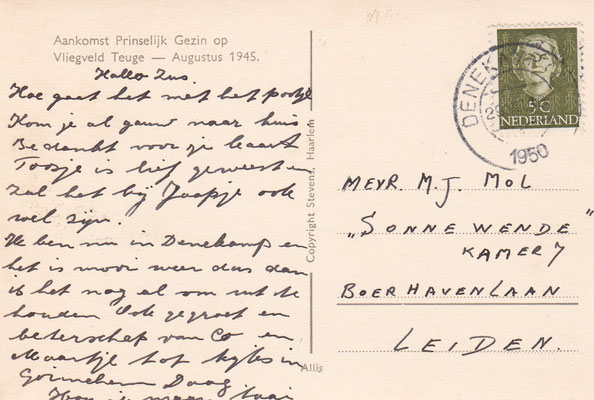 Aankomst Prinselijk Gezin op
Vliegveld Teuge — Augustus 1945.
Hallo Zus.
Hoe gaat het met het pootje
Kom je al gauw naar huis
Bedankt voor je kaart
Toosje is lief geweest en
zal het bij Jaapje ook
wel zijn.
Ik ben nu in Denekamp en
het is mooi weer dus dan
is het nog al om uit te
houden Ook gegroet en
beterschap van Co en
Maartje tot kijks in
Gorinchem Daag
Hou je maar taai
Copyright Stevens, Haarlem
Allis
DENEK
1950
5C
NEDERLAND
MEVR. M.J. MOL
„SONNEWENDE"
KAMER 7
BOERHAVENLAAN
LEIDEN.